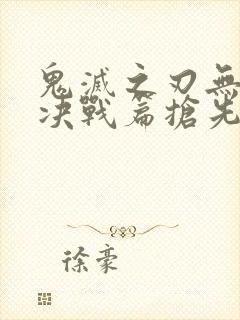 鬼滅之刃無
決戰篇搶先
徐豪